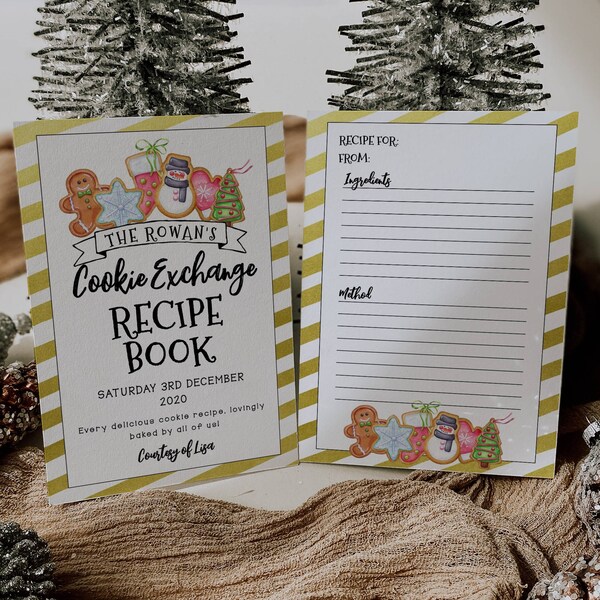 THE ROWAN'S
Cookie Exchange
RECIPE
BOOK
SATURDAY 3RD DECEMBER
2020
Every delicious cookie recipe, lovingly
baked by all of us!
Courtesy of Lisa
RECIPE FOR:
FROM:
Ingredients
Method